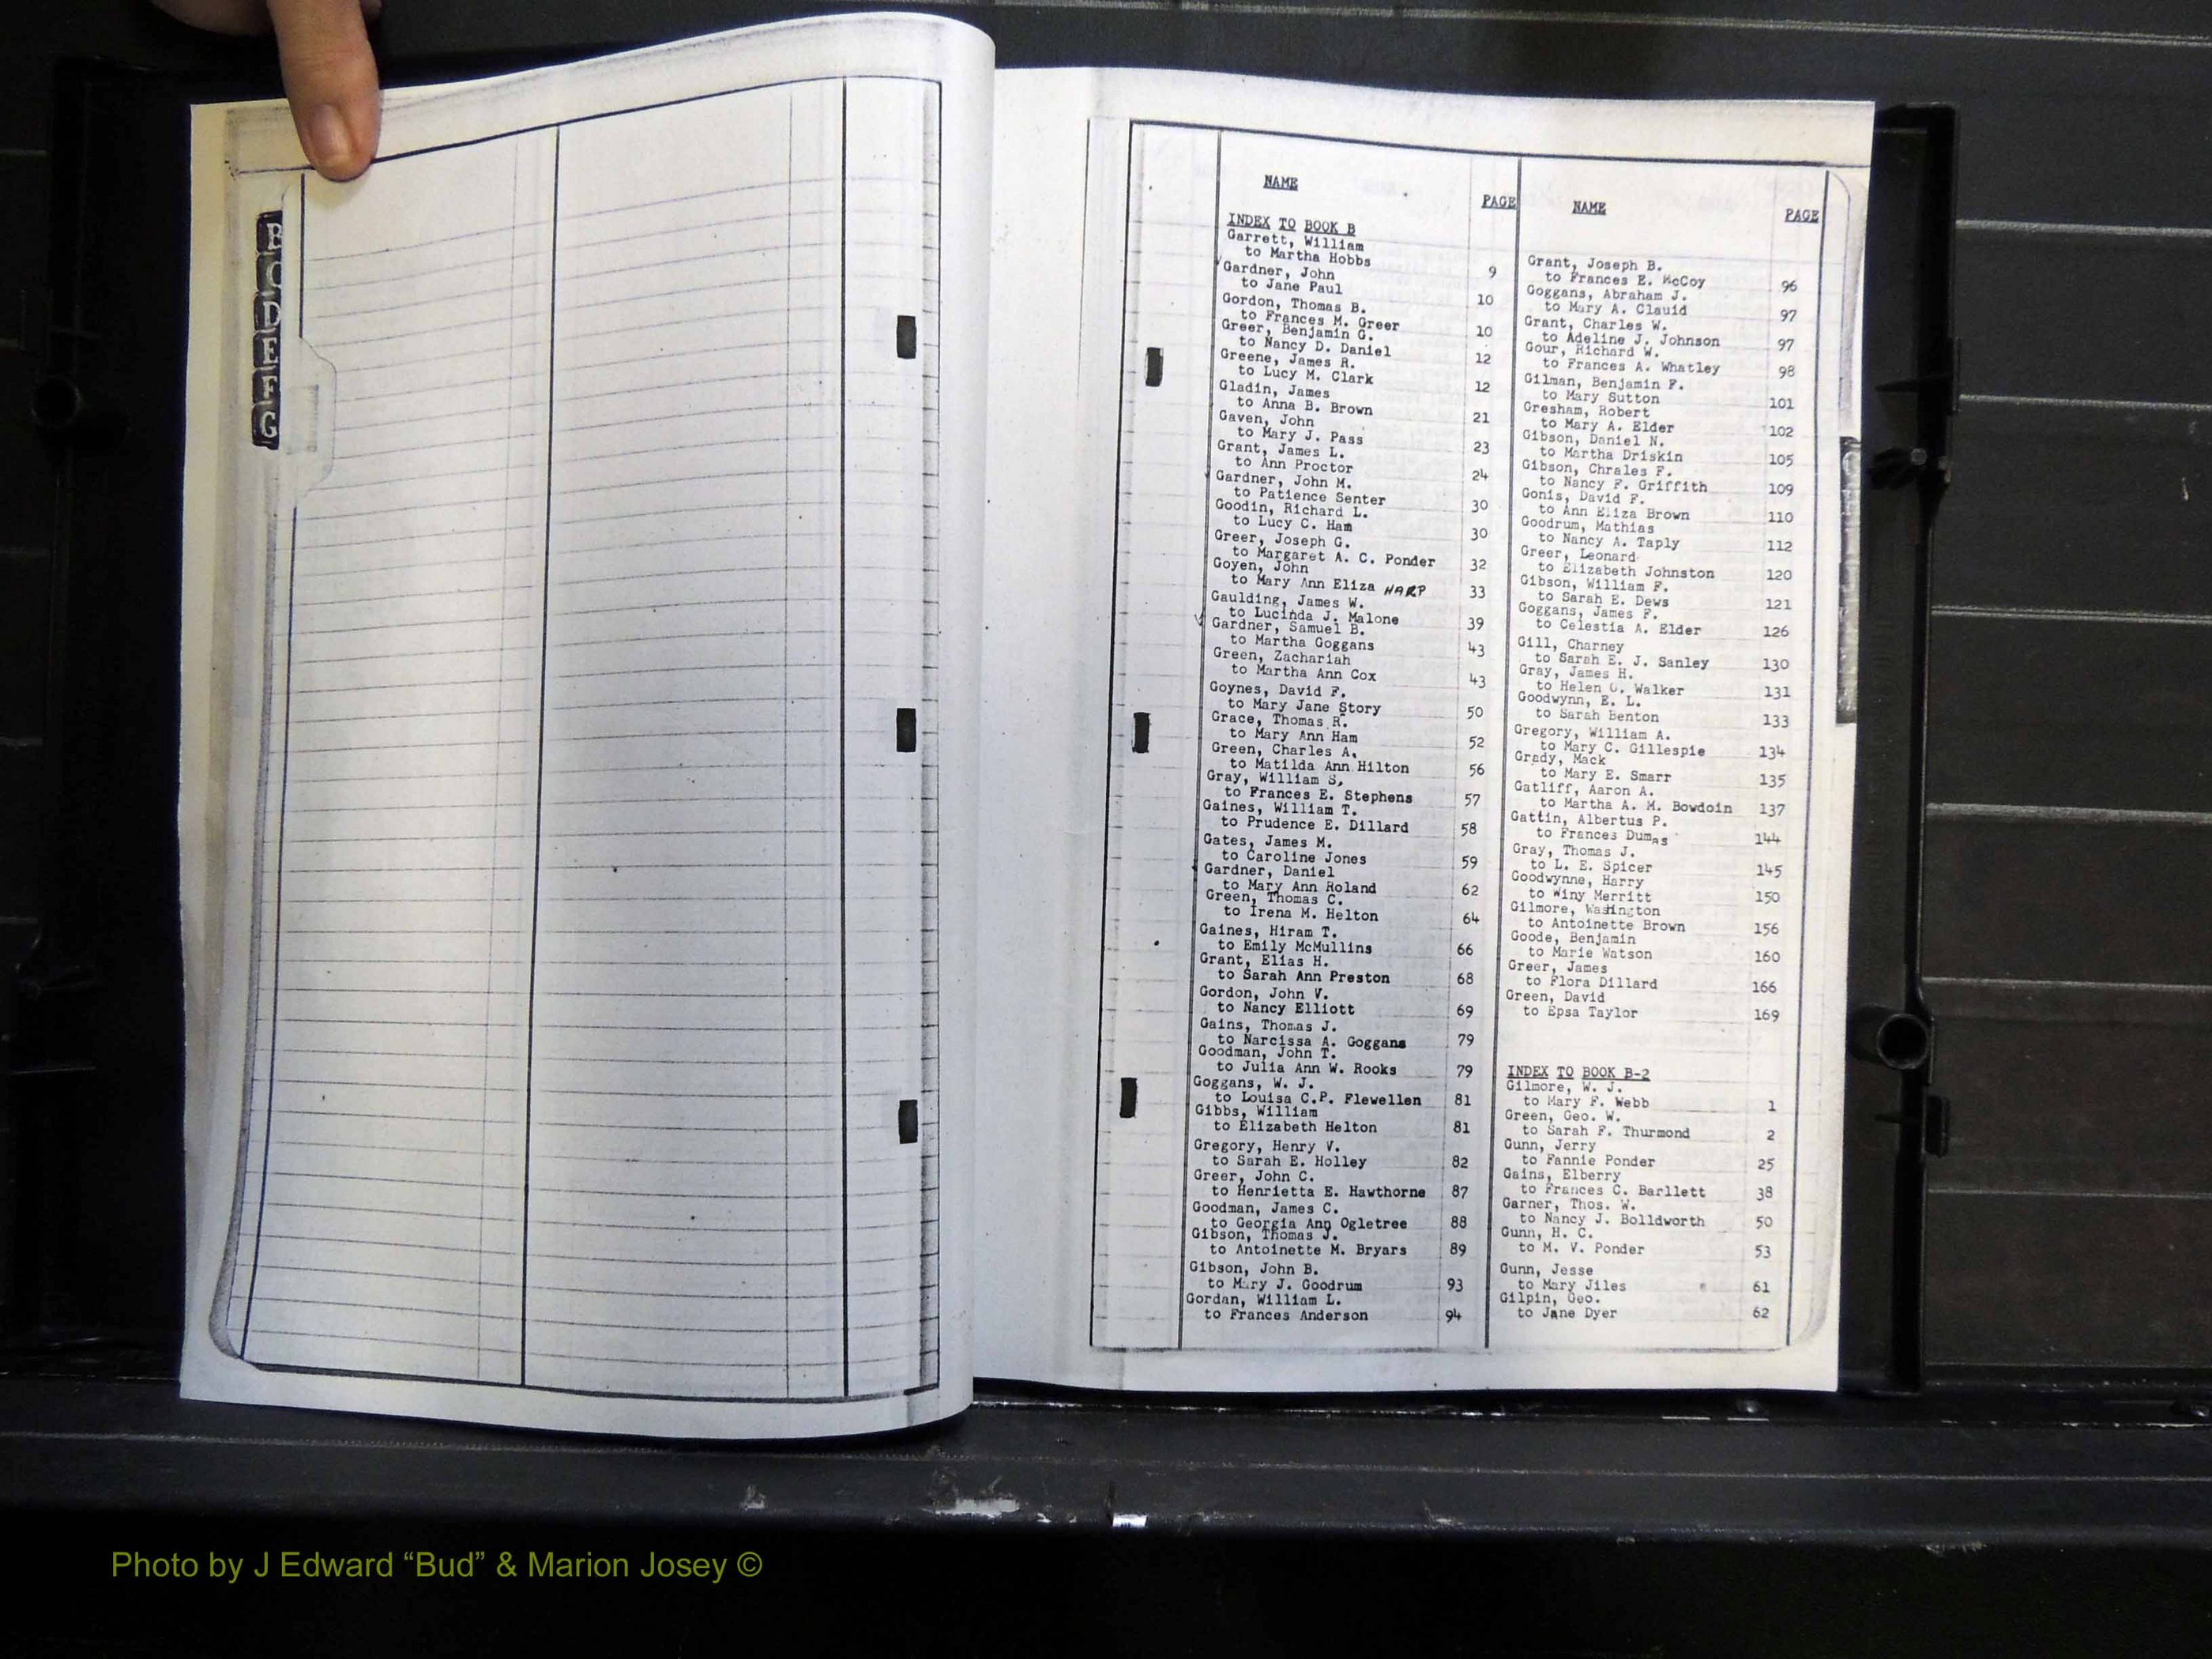 B
C
D
E
F
G
NAME
PAGE
INDEX TO BOOK B
Garrett, William
to Martha Hobbs 9
Gardner, John
to Jane Paul 10
Gordon, Thomas B.
to Frances M. Greer 10
Greer, Benjamin G.
to Nancy D. Daniel 12
Greene, James R.
to Lucy M. Clark 12
Gladin, James
to Anna B. Brown 21
Gaven, John
to Mary J. Pass 23
Grant, James L.
to Ann Proctor 24
Gardner, John M.
to Patience Senter 30
Goodin, Richard L.
to Lucy C. Ham 30
Greer, Joseph G.
to Margaret A. C. Ponder 32
Goyen, John
to Mary Ann Eliza HARP 33
Gaulding, James W.
to Lucinda J. Malone 39
Gardner, Samuel B.
to Martha Goggans 43
Green, Zachariah
to Martha Ann Cox 43
Goynes, David F.
to Mary Jane Story 50
Grace, Thomas R.
to Mary Ann Ham 52
Green, Charles A,
to Matilda Ann Hilton 56
Gray, William S,
to Frances E. Stephens 57
Gaines, William T.
to Prudence E. Dillard 58
Gates, James M.
to Caroline Jones 59
Gardner, Daniel
to Mary Ann Roland 62
Green, Thomas C.
to Irena M. Helton 64
Gaines, Hiram T.
to Emily McMullins 66
Grant, Elias H.
to Sarah Ann Preston 68
Gordon, John V.
to Nancy Elliott 69
Gains, Thomas J.
to Narcissa A. Goggans 79
Goodman, John T.
to Julia Ann W. Rooks 79
Goggans, W. J.
to Louisa C.P. Flewellen 81
Gibbs, William
to Elizabeth Helton 81
Gregory, Henry V.
to Sarah E. Holley 82
Greer, John C.
to Henrietta E. Hawthorne 87
Goodman, James C.
to Georgia Ann Ogletree 88
Gibson, Thomas J.
to Antoinette M. Bryars 89
Gibson, John B.
to Mary J. Goodrum 93
Gordan, William L.
to Frances Anderson 94
NAME
PAGE
Grant, Joseph B.
to Frances E. McCoy 96
Goggans, Abraham J.
to Mary A. Clauid 97
Grant, Charles W.
to Adeline J. Johnson 97
Gour, Richard W.
to Frances A. Whatley 98
Gilman, Benjamin F.
to Mary Sutton 101
Gresham, Robert
to Mary A. Elder 102
Gibson, Daniel N.
to Martha Driskin 105
Gibson, Chrales F.
to Nancy F. Griffith 109
Gonis, David F.
to Ann Eliza Brown 110
Goodrum, Mathias
to Nancy A. Taply 112
Greer, Leonard
to Elizabeth Johnston 120
Gibson, William F.
to Sarah E. Dews 121
Goggans, James F.
to Celestia A. Elder 126
Gill, Charney
to Sarah E. J. Sanley 130
Gray, James H.
to Helen O. Walker 131
Goodwynn, E. L.
to Sarah Benton 133
Gregory, William A.
to Mary C. Gillespie 134
Grady, Mack
to Mary E. Smarr 135
Gatliff, Aaron A.
to Martha A. M. Bowdoin 137
Gattin, Albertus P.
to Frances Dumas 144
Gray, Thomas J.
to L. E. Spicer 145
Goodwynne, Harry
to Winy Merritt 150
Gilmore, Washington
to Antoinette Brown 156
Goode, Benjamin
to Marie Watson 160
Greer, James
to Flora Dillard 166
Green, David
to Epsa Taylor 169
INDEX TO BOOK B-2
Gilmore, W. J.
to Mary F. Webb 1
Green, Geo. W.
to Sarah F. Thurmond 2
Gunn, Jerry
to Fannie Ponder 25
Gains, Elberry
to Frances C. Barllett 38
Garner, Thos. W.
to Nancy J. Bolldworth 50
Gunn, H. C.
to M. V. Ponder 53
Gunn, Jesse
to Mary Jiles 61
Gilpin, Geo.
to Jane Dyer 62
Photo by J Edward “Bud” & Marion Josey ©